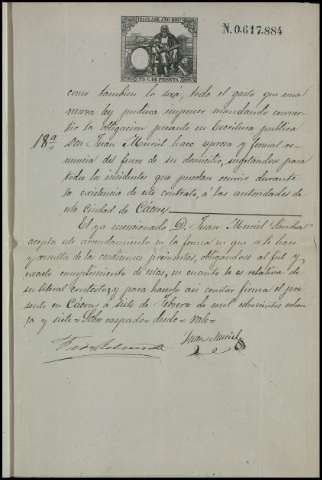 N.0.617.884
como tambien lo será, todo el gasto que una
nueva ley pudiera imponer mandando conver-
tir la obligacion presente en Escritura publica
18ª Don Juan Muriel hace espresa y formal re-
nuncia del fuero de su domicilio, sugetandose para
todos los incidentes que puedan ocurrir durante
la existencia de este contrato, á las autoridades de
esta Ciudad de Cáceres
El ya mencionado D. Juan Muriel
acepta este arrendamiento en la forma en que se le hace
y con todas las condiciones, obligandose al fiel y
exacto cumplimiento de estas, en cuanto le es relativo
y para hacerlo asi constar firma el pre-
sente en Cáceres á siete de Febrero de mil ochocientos ochen-
ta y siete = Sobre raspado = = vale =
Juan Muriel